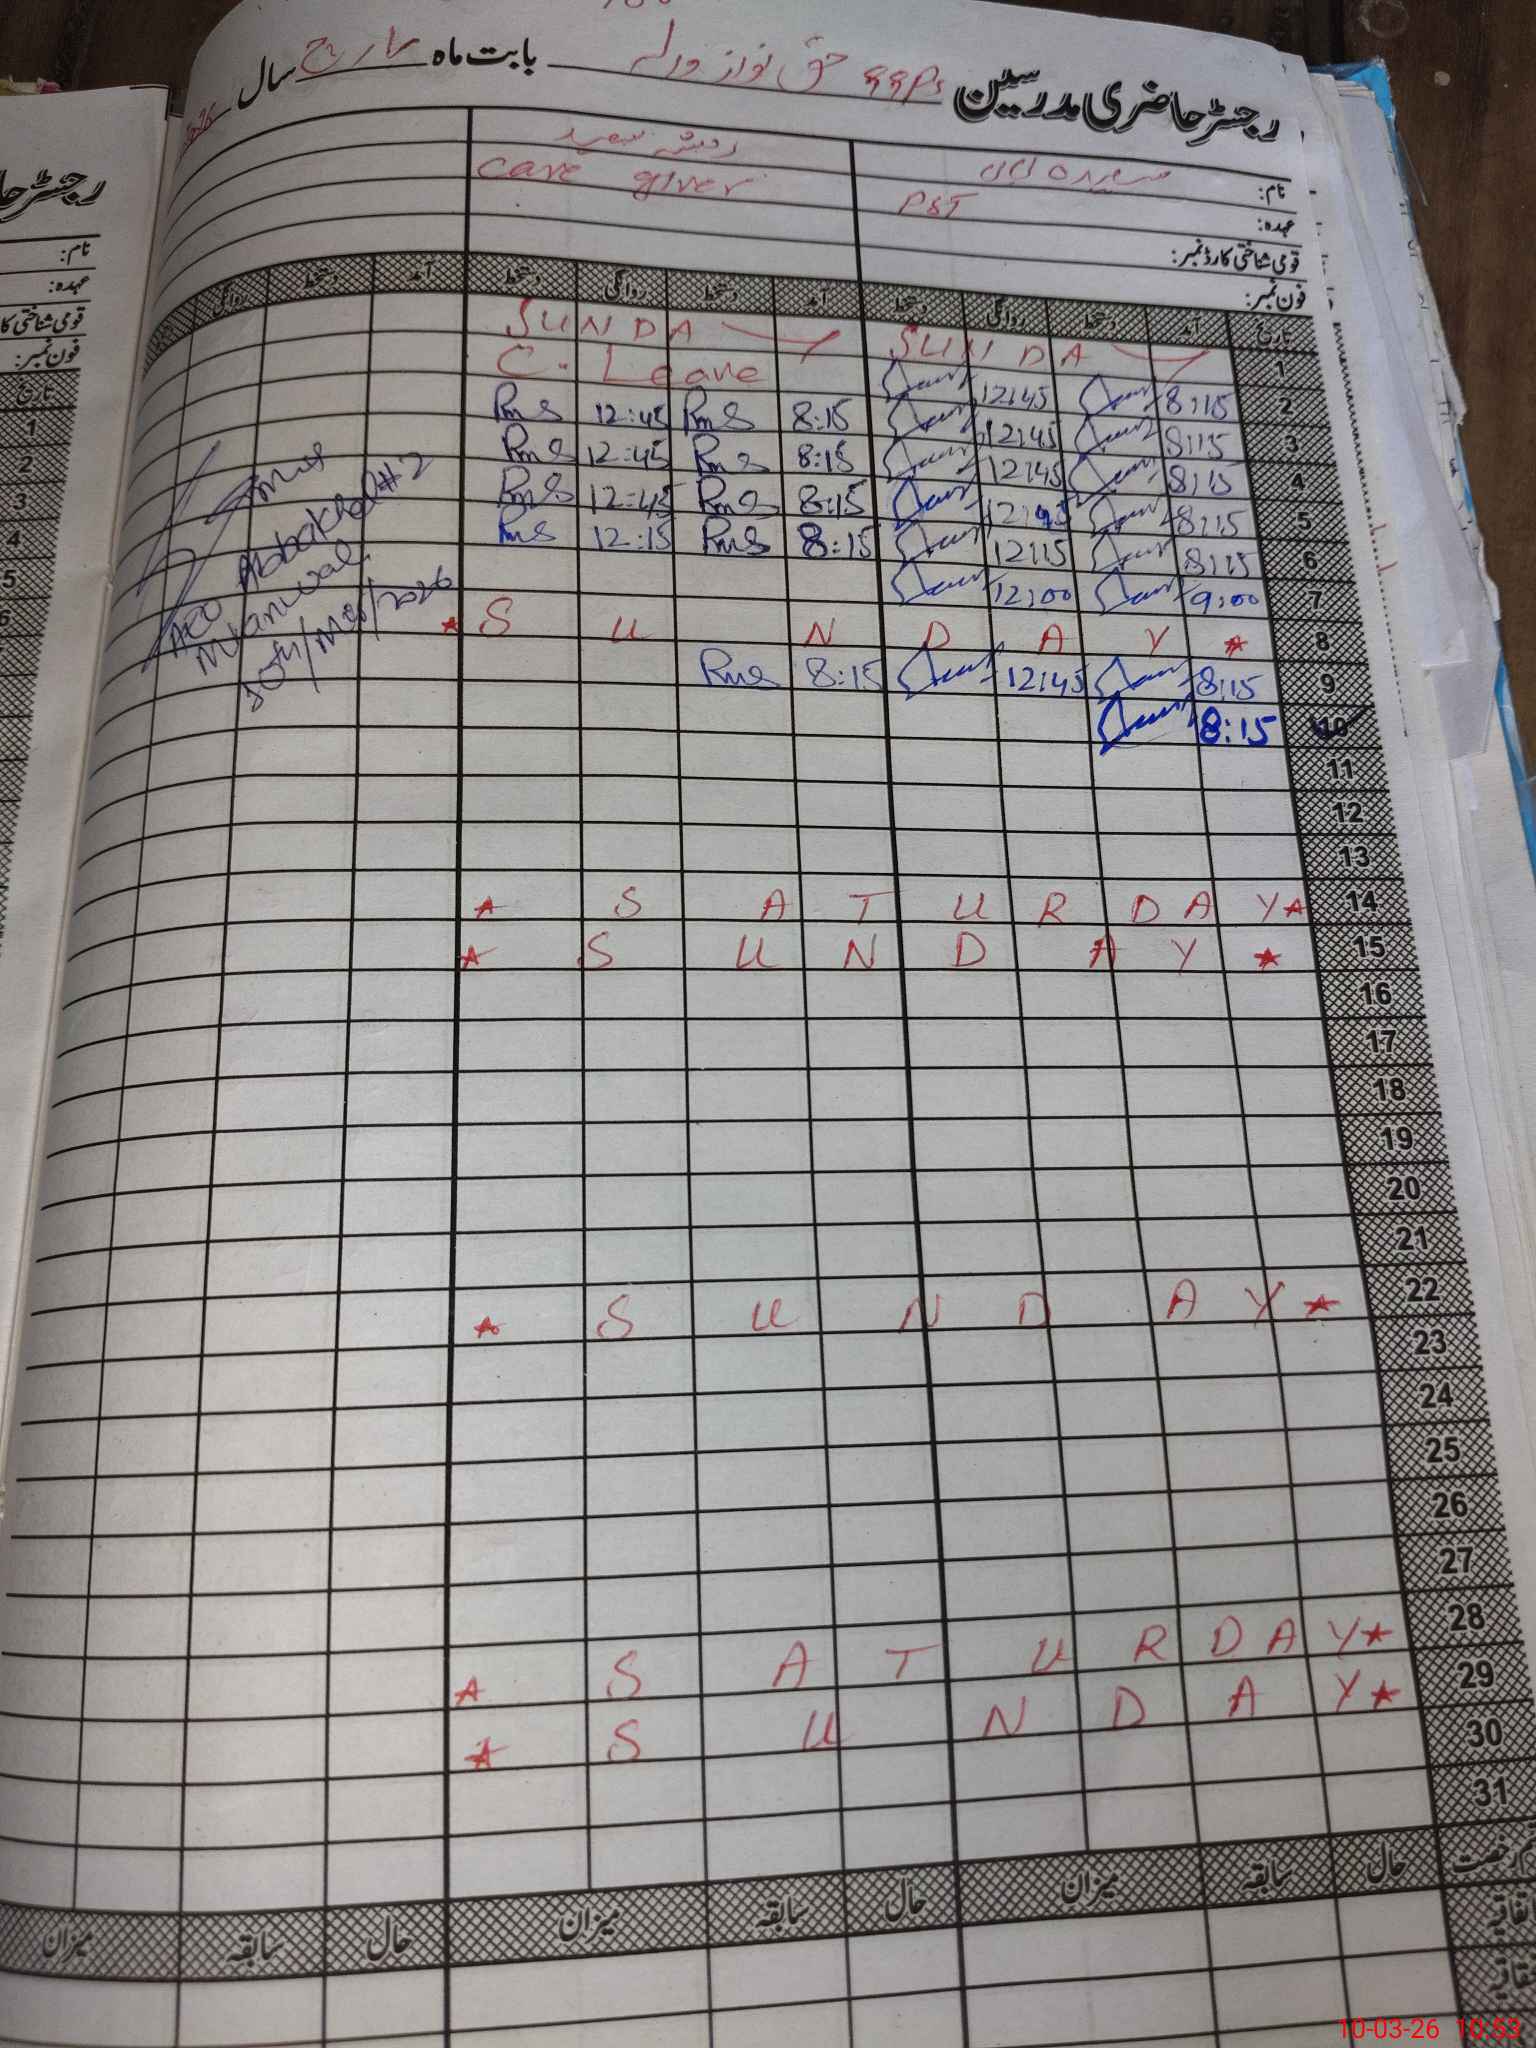 رجسٹر حاضری مدرسین ggps حق نواز والہ بابت ماہ مارچ سال
نام:
عہدہ: PST care giver
قومی شناختی کارڈ نمبر:
فون نمبر:
تاریخ آمد دستخط روانگی دستخط آمد دستخط روانگی دستخط آمد دستخط روانگی
1 SUNDAY SUNDAY
2 8:15 12:45 C. Leave
3 8:15 12:45 8:15 Rms 12:45 Rms
4 8:15 12:45 8:15 Rms 12:45 Rms
5 8:15 12:45 8:15 Rms 12:45 Rms
6 8:15 12:15 8:15 Rms 12:15 Rms
7 9:00 12:00
8 * SUNDAY *
9 8:15 12:45 8:15 Rms
10 8:15
11
12
13
14 * SATURDAY *
15 * SUNDAY *
16
17
18
19
20
21
22 * SUNDAY *
23
24
25
26
27
28 * SATURDAY *
29 * SUNDAY *
30
31
رخصت حال سابقہ میزان حال سابقہ میزان حال سابقہ میزان
AEO Abbakhel #2
Mianwali
رجسٹر حا
نام:
عہدہ:
قومی شناختی کا
فون نمبر:
تاریخ
1
2
3
4
5
6
10-03-26 10:53